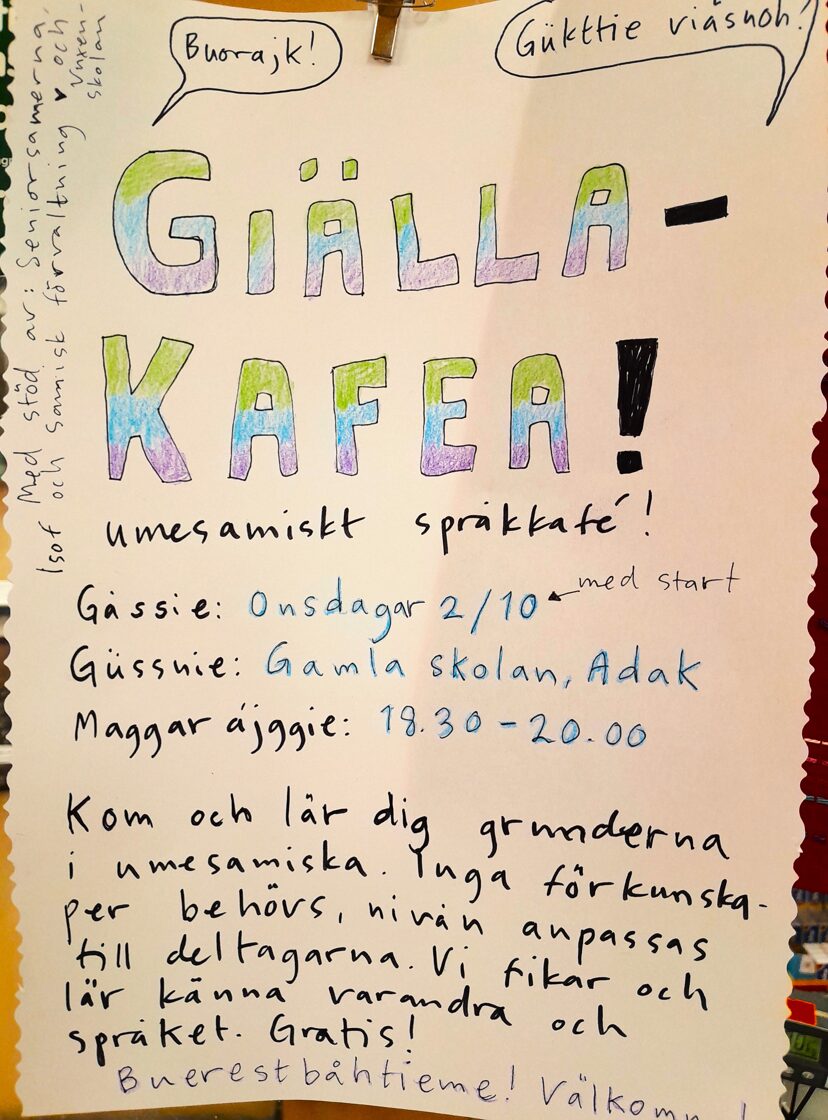 Buorajk!
Gükttie viäsuoh?
GIÄLLA-
KAFEA!
umesamiskt språkkafé!
Gåssie: Onsdagar 2/10 med start
Güssnie: Gamla skolan, Adak
Maggar ájggie: 18.30-20.00
Kom och lär dig grunderna
i umesamiska. Inga förkunska-
per behövs, nivån anpassas
till deltagarna. Vi fikar och
lär känna varandra och
språket. Gratis!
Buerestbåhtieme! Välkomn
Med stöd av: Seniorsamerna,
Isof och samisk förvaltning ♥ och
Vuxen-
skolan